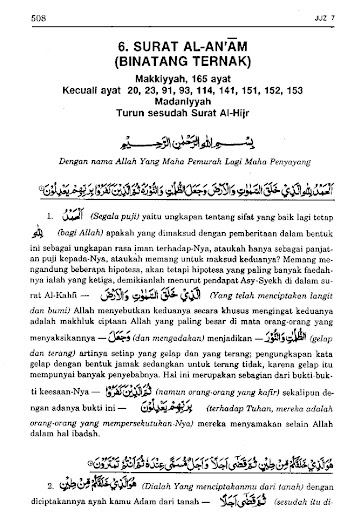 508 JUZ 7
6. SURAT AL-AN'ĀM
(BINATANG TERNAK)
Makkiyyah, 165 ayat
Kecuali ayat 20, 23, 91, 93, 114, 141, 151, 152, 153
Madaniyyah
Turun sesudah Surat Al-Hijr
بِسْمِ اللهِ الرَّحْمٰنِ الرَّحِيْمِ
Dengan nama Allah Yang Maha Pemurah Lagi Maha Penyayang
اَلْحَمْدُ لِلّٰهِ الَّذِيْ خَلَقَ السَّمٰوٰتِ وَالْاَرْضَ وَجَعَلَ الظُّلُمٰتِ وَالنُّوْرَ ثُمَّ الَّذِيْنَ كَفَرُوْا بِرَبِّهِمْ يَعْدِلُوْنَ
1. اَلْحَمْدُ (Segala puji) yaitu ungkapan tentang sifat yang baik lagi tetap
لِلّٰهِ (bagi Allah) apakah yang dimaksud dengan pemberitaan dalam bentuk
ini sebagai ungkapan rasa iman terhadap-Nya, ataukah hanya sebagai panjat-
an puji kepada-Nya, ataukah memang untuk maksud keduanya? Memang me-
ngandung beberapa hipotesa, akan tetapi hipotesa yang paling banyak faedah-
nya ialah yang ketiga, demikianlah menurut pendapat Asy-Syekh di dalam su-
rat Al-Kahfi — الَّذِيْ خَلَقَ السَّمٰوٰتِ وَالْاَرْضَ (Yang telah menciptakan langit
dan bumi) Allah menyebutkan keduanya secara khusus mengingat keduanya
adalah makhluk ciptaan Allah yang paling besar di mata orang-orang yang
menyaksikannya — وَجَعَلَ (dan mengadakan) menjadikan — الظُّلُمٰتِ وَالنُّوْرَ (gelap
dan terang) artinya setiap yang gelap dan yang terang; pengungkapan kata
gelap dengan bentuk jamak sedangkan untuk terang tidak, karena gelap itu
mempunyai banyak penyebabnya. Hal ini merupakan sebagian dari bukti-buk-
ti keesaan-Nya — ثُمَّ الَّذِيْنَ كَفَرُوْا (namun orang-orang yang kafir) sekalipun de-
ngan adanya bukti ini — بِرَبِّهِمْ يَعْدِلُوْنَ (terhadap Tuhan, mereka adalah
orang-orang yang mempersekutukan-Nya) mereka menyamakan selain Allah
dalam hal ibadah.
هُوَ الَّذِيْ خَلَقَكُمْ مِّنْ طِيْنٍ ثُمَّ قَضٰى اَجَلًا وَاَجَلٌ مُّسَمًّى عِنْدَهٗ ثُمَّ اَنْتُمْ تَمْتَرُوْنَ
2. هُوَ الَّذِيْ خَلَقَكُمْ مِّنْ طِيْنٍ (Dialah Yang menciptakanmu dari tanah) dengan
diciptakannya ayah kamu Adam dari tanah — ثُمَّ قَضٰى اَجَلًا (sesudah itu di-